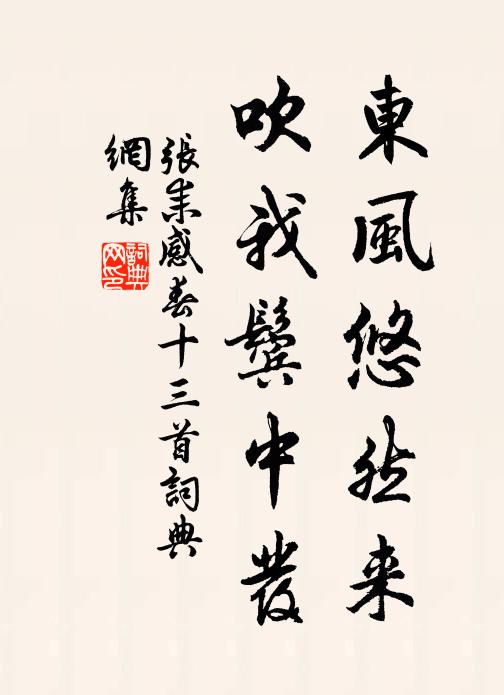 東風悠然来
吹我鬢中發
張耒感春十三首詞典
網集
詞典
网印